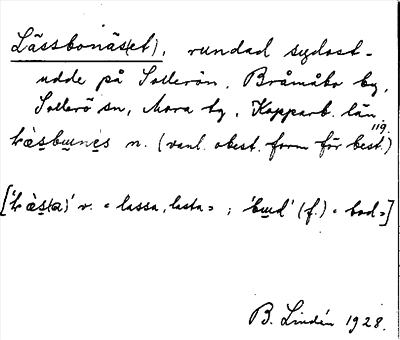 Lässbonäs(et), rundad sydost-
udde på Sollerön, Bråmåbo by,
Sollerö sn, Mora tg, Kopparb. län.
119.
Lɑ̀sbɯnɛs n. (vanl. obest. form för best.)
['Lɑ̀s(a)' v. = lassa, lasta = ; 'bɯd' (f.) = bod=]
B. Lindén 1928.